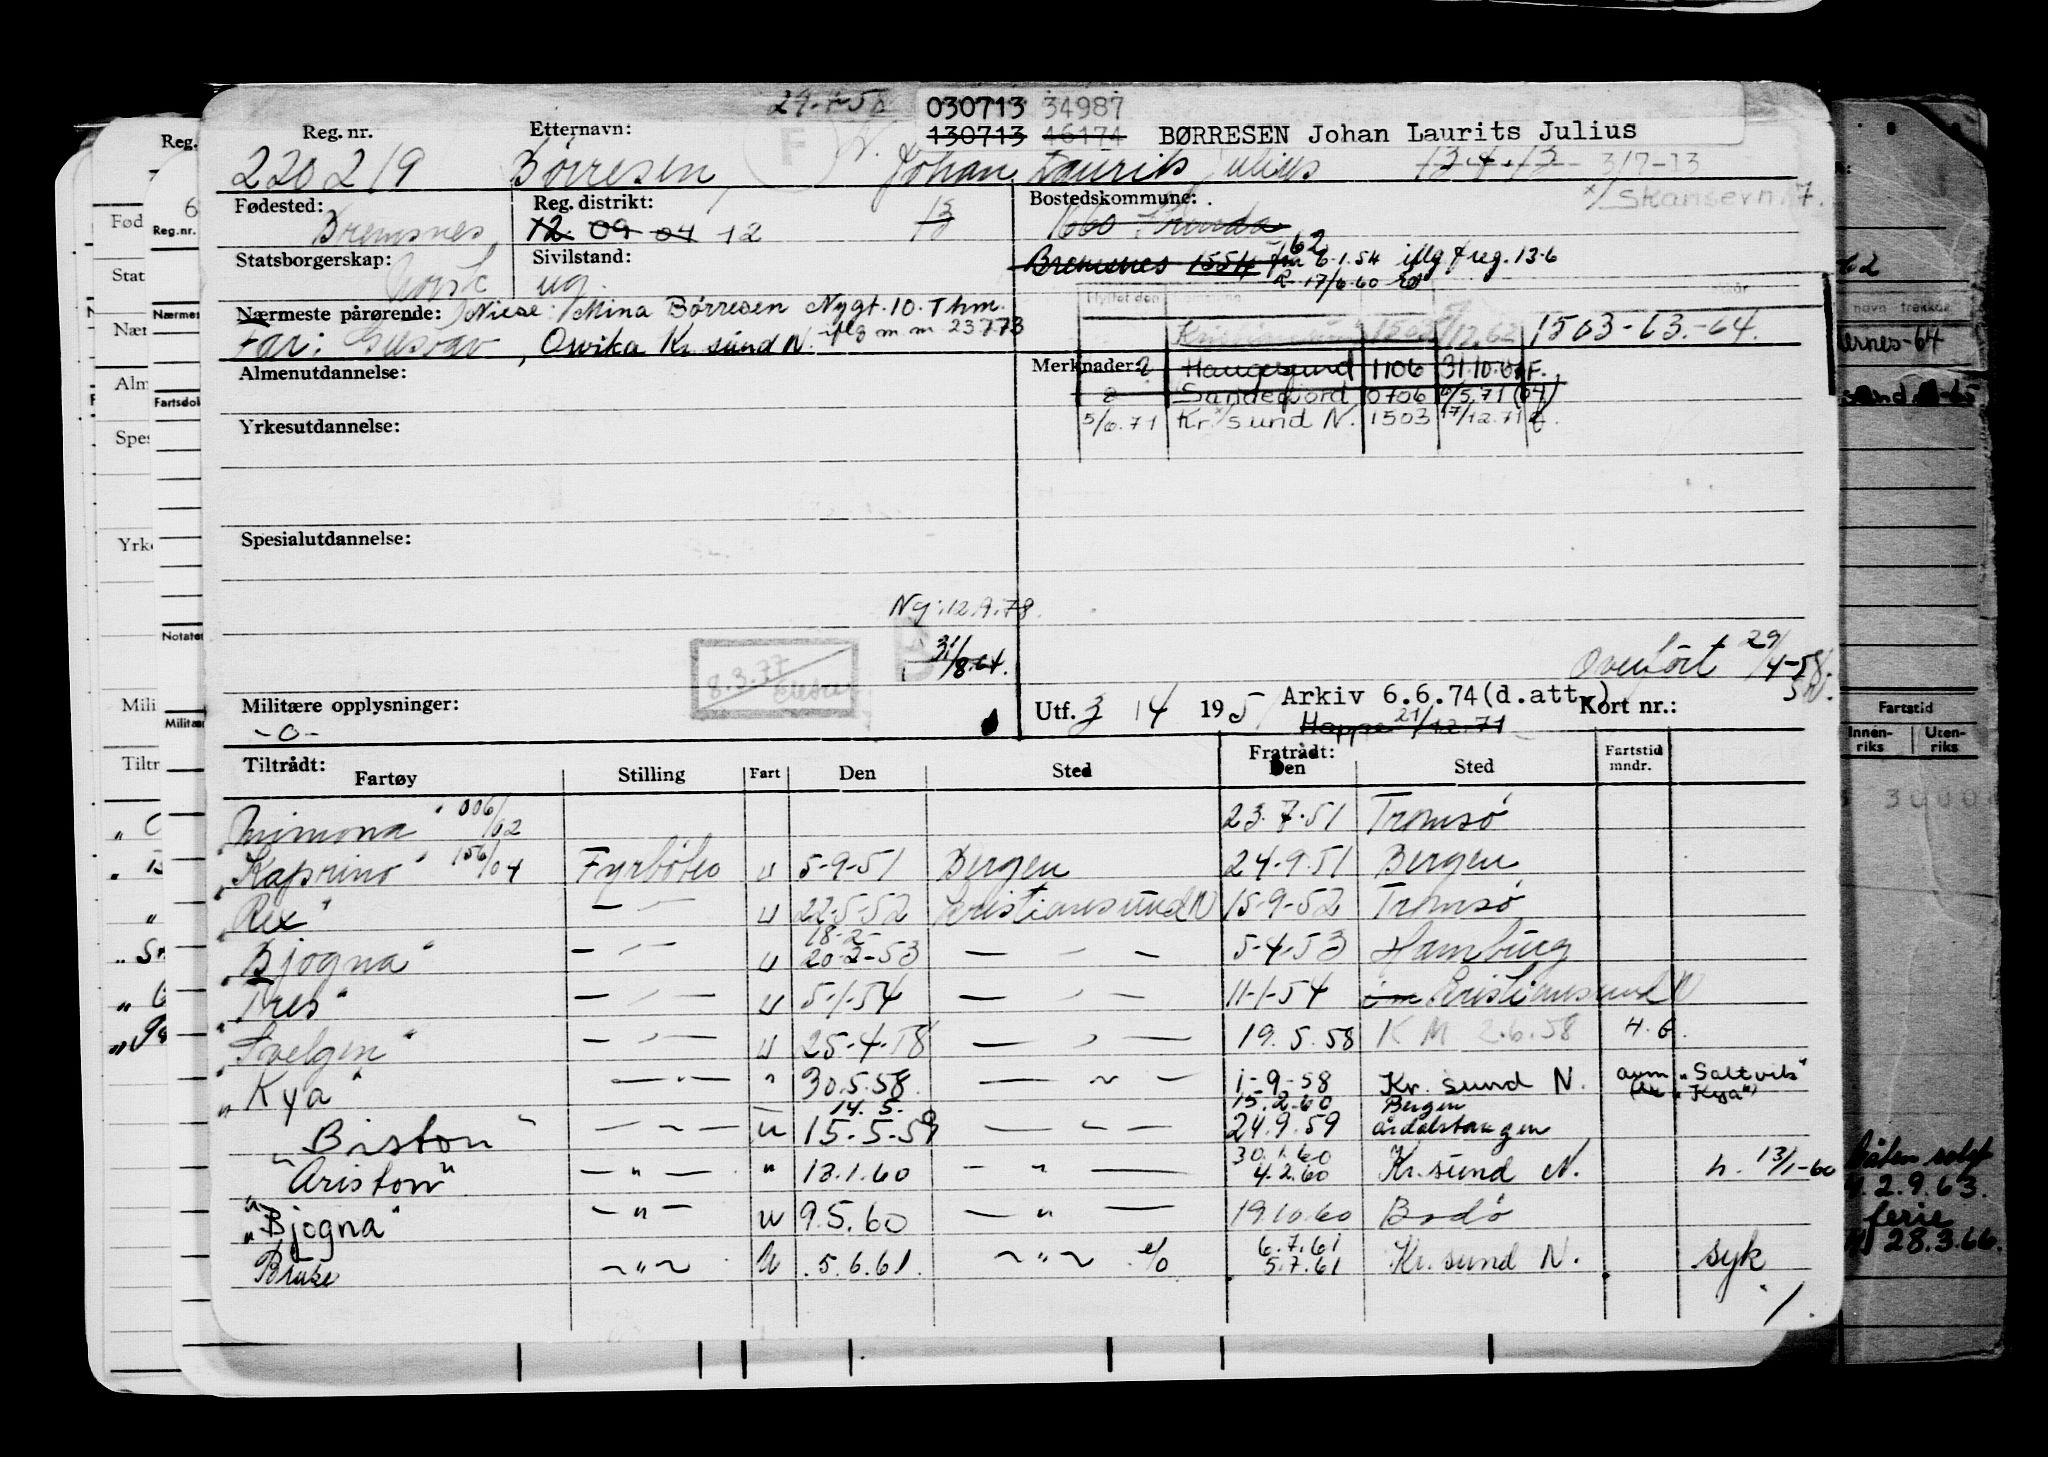 29-4-58 030713 34987
Reg. nr. Etternavn: 130713 46174 BØRRESEN Johan Laurits Julius
220219 Börresen, Johan Laurits Julius 13-4-13 3/7-13
x/ Skansevn. 7.
Fødested: Reg. distrikt: Bostedskommune:
Bremsnes 12 09 04 12 13 1660
Bremsnes 1554 fm 6.1.54 iflg f reg. 13.6 62
R 17/6.60
Statsborgerskap: Sivilstand:
norsk ug.
Nærmeste pårørende: Niese: Mina Børresen Nygt. 10. Thm.
iflg m m 23773
Far: , Orvika Kr. sund N.
Flyttet den Kommune
1503 12.62 1503-63.-64.
Almenutdannelse: Merknader: Haugesund 1106 31.10. F.
Sandefjord 0706 /5.71 (04)
Yrkesutdannelse: 5/6.71 Kr. sund N. 1503 17/12.71
Spesialutdannelse:
Ng: 12.9.78.
8.3.77
31/8.64.
Overført 29/4-58
Militære opplysninger: Utf. 3 / 4 195 Arkiv 6.6.74(d.att.) Kort nr.:
-0- Hoppe 21/12.71
Tiltrådt: Fratrådt:
Fartøy Stilling Fart Den Sted Den Sted Fartstid mndr.
Mimona" 006/02 23.7.51 Tromsö
"Kaprino" 156/04 Fyrböter u 5-9-51 Bergen 24.9.51 Bergen
"Rex" — " — u 22-5-52 Kristiansund N 15-9-52 Tromsö
18-2-
"Bjogna" — " — u 20-2-53 — " — 5-4-53 Hamburg
"Tres" — " — u 5-1-54 — " — 11-1-54 Kristiansund N
"Svelgen" — " — u 25-4-58 — " — 19.5.58 K M 2.6.58 H.G.
"Kya" — " — " 30.5.58 — " — 1-9-58 Kr. sund N. "Saltvik"
"Kya")
14.5. 15.2.60 Bergen
"Biston" — " — u 15-5-59 — " — 24.9.59 årdalstangen
30.1.60
"Ariston" — " — " 13.1.60 — " — 4.2.60 Kr. sund N. h. 13/1-60
"Bjogna" — " — u 9.5.60 — " — 19.10.60 Bodö
6.7.61
Bruse — " — u 5.6.61 — " — e/o 5.7.61 Kr. sund N. syk
1.
Reg.
Fød
Reg.nr.
Stat
Nærmes
Nær
Alm
Fartsdok
Spes
Yrke
Notater
Mili
Militær
Tiltr
navn trekkde
Fartstid
Innen-riks Uten-riks
Båten solgt
2.9.63.
ferie
28.3.66.